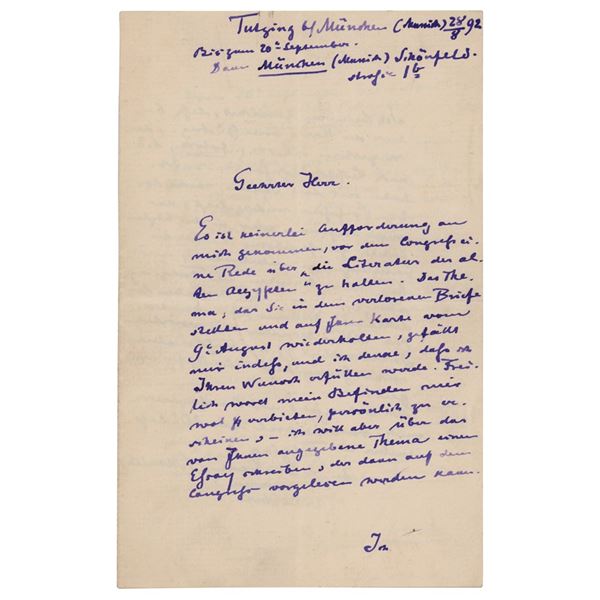 Tutzing b/ München (Munich) 28/8 92
Bis zum 20ten September.
Dann München (Munich) Schönfeld-
straße 1b
Geehrter Herr.
Es ist keinerlei Aufforderung an
mich gekommen, vor dem Congreß ei-
ne Rede über „die Literatur der al-
ten Aegypter" zu halten. Das The-
ma, das Sie in dem verlorenen Briefe
stellten und auf Ihrer Karte vom
9ten August wiederholten, gefällt
mir indeß, und ich denke, daß ich
Ihren Wunsch erfüllen werde. Frei-
lich wird mein Befinden mir
wol verbieten, persönlich zu er-
scheinen, – ich will aber über das
von Ihnen angegebene Thema einen
Essay schreiben, der dann auf dem
Congreß vorgelesen werden kann.
Ich